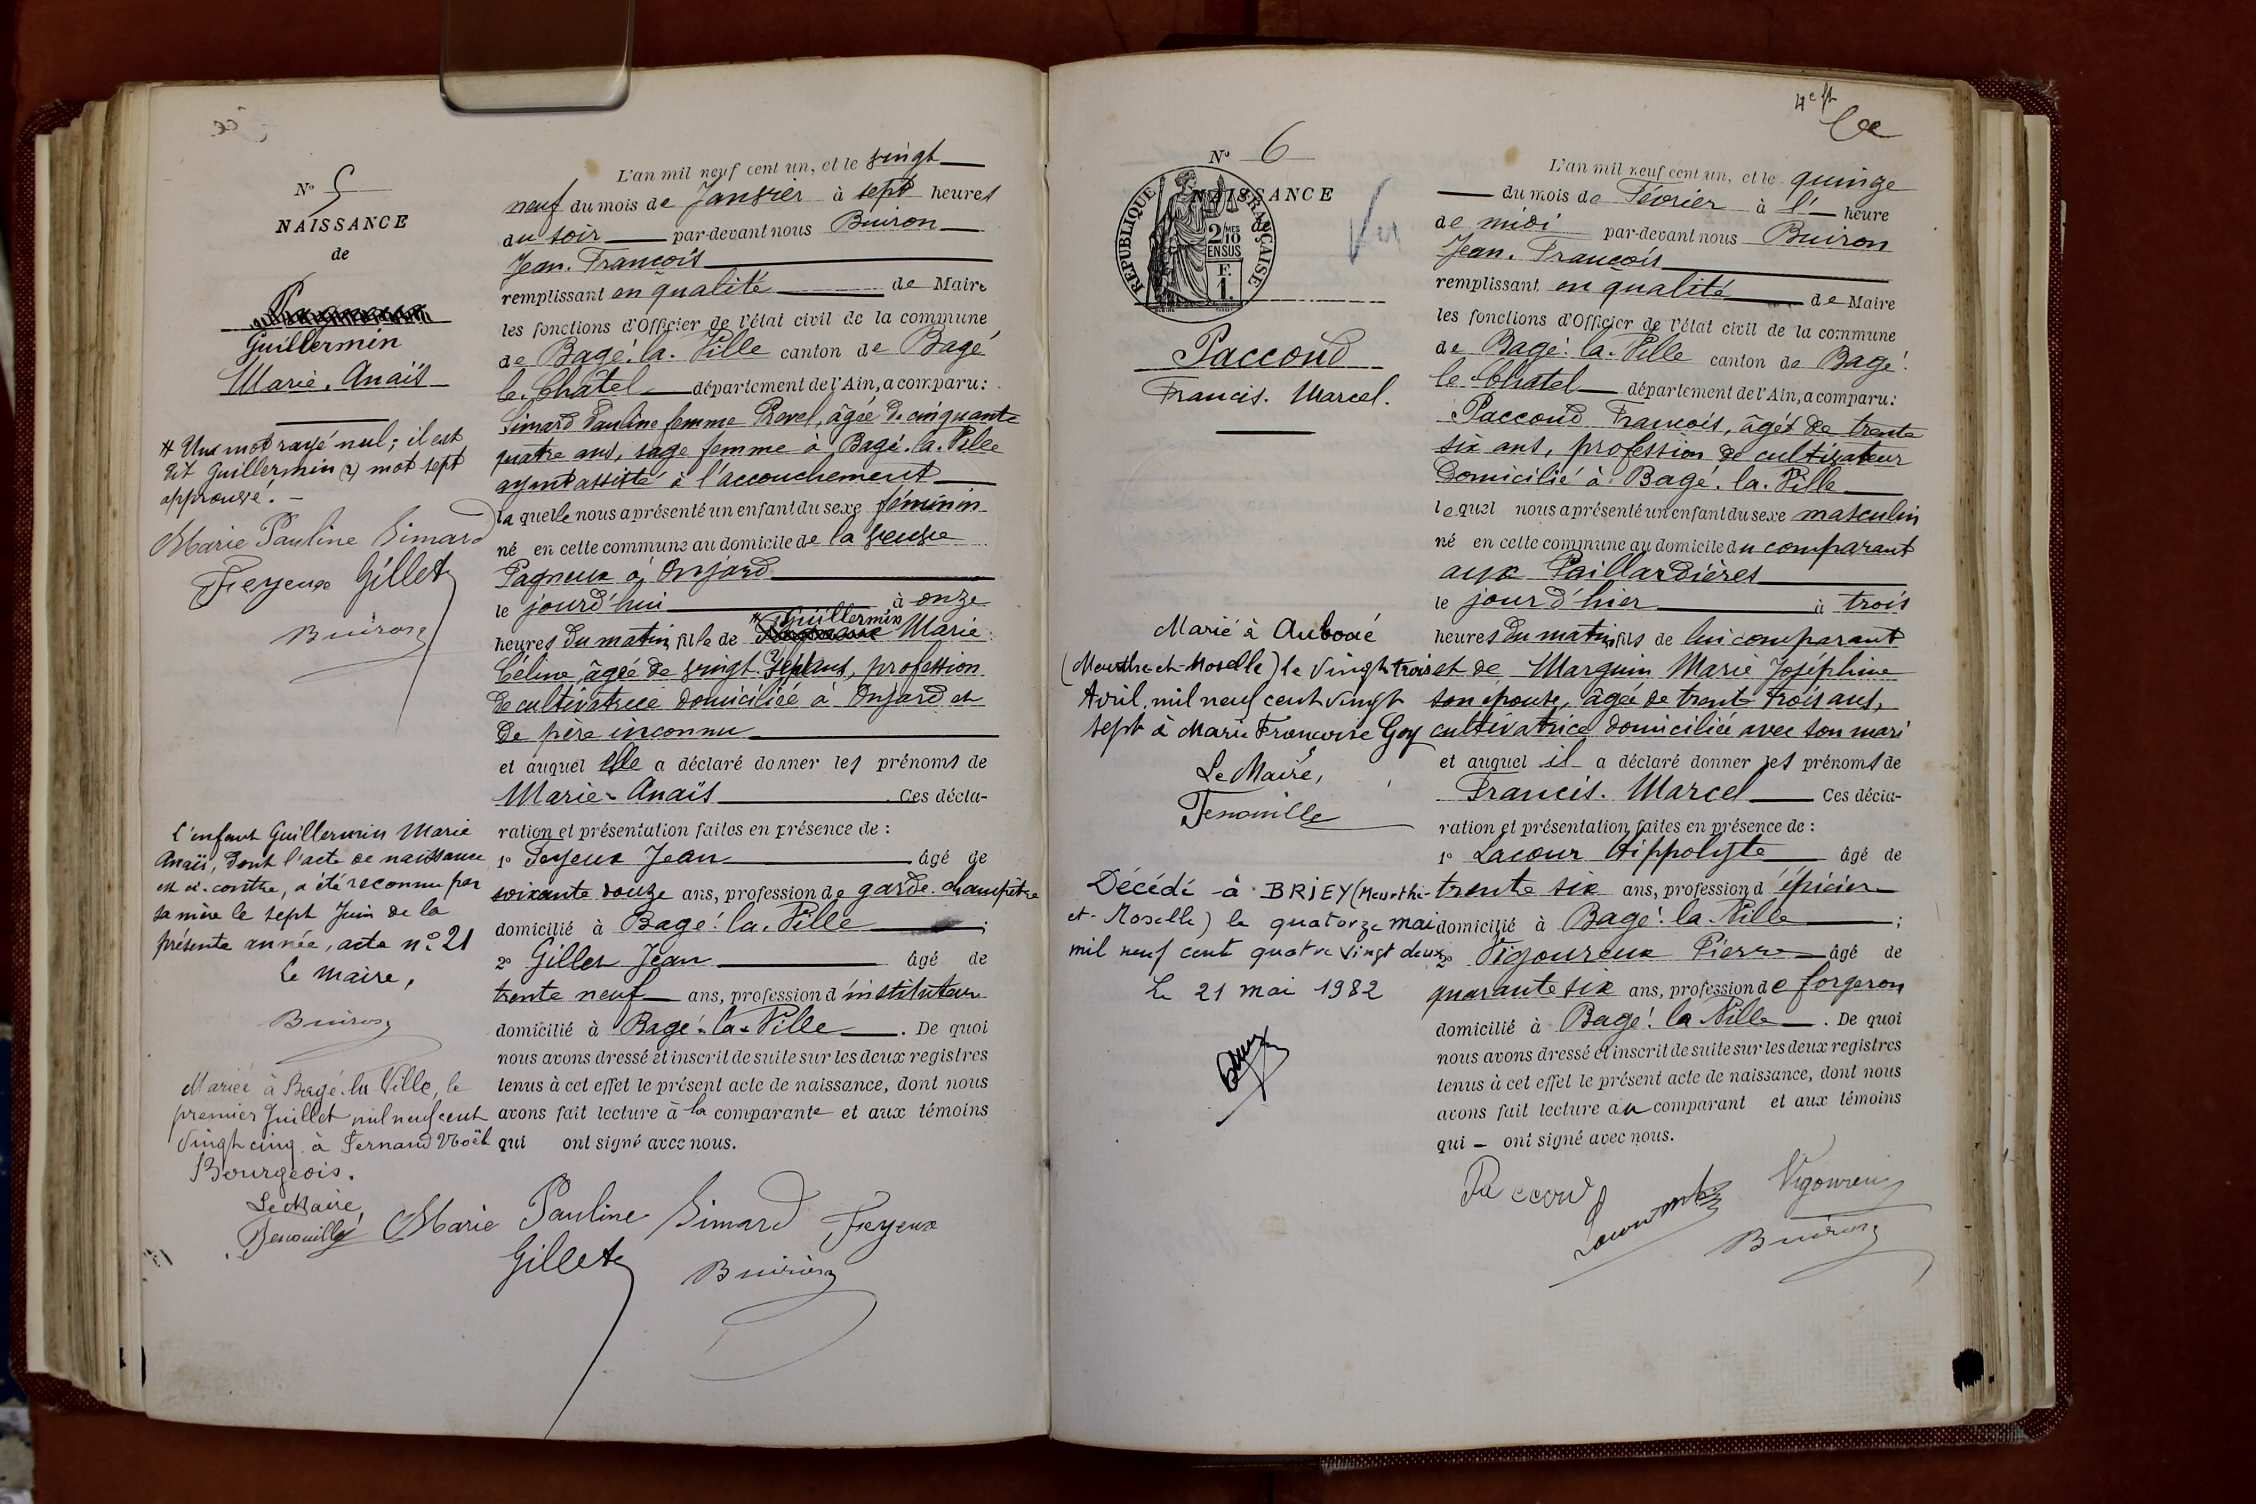 N° 5
NAISSANCE
de
Guillermin
Marie. Anaïs
# Un mot rayé nul; il est
dit Guillermin (2) mot sept
approuvé. -
Marie Pauline Simard
Feyeux Gillet
Buiron
L'enfant Guillermin Marie
Anaïs, dont l'acte de naissance
est ci-contre, a été reconnu par
sa mère le sept Juin de la
présente année, acte n° 21
Le Maire,
Buiron
Mariée à Bagé-la-Ville, le
premier Juillet mil neuf cent
vingt cinq à Fernand Noël
Bourgeois.
Le Maire,
L'an mil neuf cent un, et le vingt
neuf du mois de Janvier à sept heures
du soir par-devant nous Buiron
Jean. François
remplissant en qualité de Maire
les fonctions d'Officier de l'état civil de la commune
de Bagé. la. Ville canton de Bagé
le. Châtel département de l'Ain, a comparu:
Simard Pauline femme Revel, âgée de cinquante
quatre ans, sage femme à Bagé. la. Ville
ayant assisté à l'accouchement
laquelle nous a présenté un enfant du sexe féminin
né en cette commune au domicile de la veuve
Pagneux à Onjard
le jourd'hui à onze
heures du matin, fille de # Guillermin Marie
Céline, âgée de vingt sept ans, profession
de cultivatrice domiciliée à Onjard et
de père inconnu
et auquel elle a déclaré donner les prénoms de
Marie-Anaïs Ces décla-
ration et présentation faites en présence de :
1° Feyeux Jean âgé de
soixante douze ans, profession de garde-champêtre
domicilié à Bagé. la. Ville ;
2° Gillet Jean âgé de
trente neuf ans, profession d'instituteur
domicilié à Bagé-la-Ville. De quoi
nous avons dressé et inscrit de suite sur les deux registres
tenus à cet effet le présent acte de naissance, dont nous
avons fait lecture à la comparante et aux témoins
qui ont signé avec nous.
Marie Pauline Simard Feyeux
Gillet Buiron
4e ft
N° 6
NAISSANCE
RÉPUBLIQUE FRANÇAISE
2/10 MES
EN SUS
F.
1.
Vu
Paccoud
Francis. Marcel.
Marié à Auboué
(Meurthe-et-Moselle) le vingt trois
Avril, mil neuf cent vingt
sept à Marie Françoise Goy
Le Maire,
Décédé à BRIEY (Meurthe-
et-Moselle) le quatorze mai
mil neuf cent quatre vingt deux
Le 21 mai 1982
L'an mil neuf cent un, et le quinze
du mois de Février à l' heure
de midi par-devant nous Buiron
Jean. François
remplissant en qualité de Maire
les fonctions d'Officier de l'état civil de la commune
de Bagé. la. Ville canton de Bagé.
le Châtel département de l'Ain, a comparu:
Paccoud François, âgé de trente
six ans, profession de cultivateur
domicilié à Bagé. la. Ville
lequel nous a présenté un enfant du sexe masculin
né en cette commune au domicile du comparant
aux Paillardières
le jour d'hier à trois
heures du matin, fils de lui comparant
et de Marguin Marie Joséphine
son épouse, âgée de trente trois ans,
cultivatrice domiciliée avec son mari
et auquel il a déclaré donner les prénoms de
Francis. Marcel Ces décla-
ration et présentation faites en présence de :
1° Lacour Hippolyte âgé de
trente six ans, profession d'épicier
domicilié à Bagé. la Ville ;
2° Vigoureux Pierre âgé de
quarante six ans, profession de forgeron
domicilié à Bagé. la Ville. De quoi
nous avons dressé et inscrit de suite sur les deux registres
tenus à cet effet le présent acte de naissance, dont nous
avons fait lecture au comparant et aux témoins
qui - ont signé avec nous.
Paccoud Vigoureux
Buiron